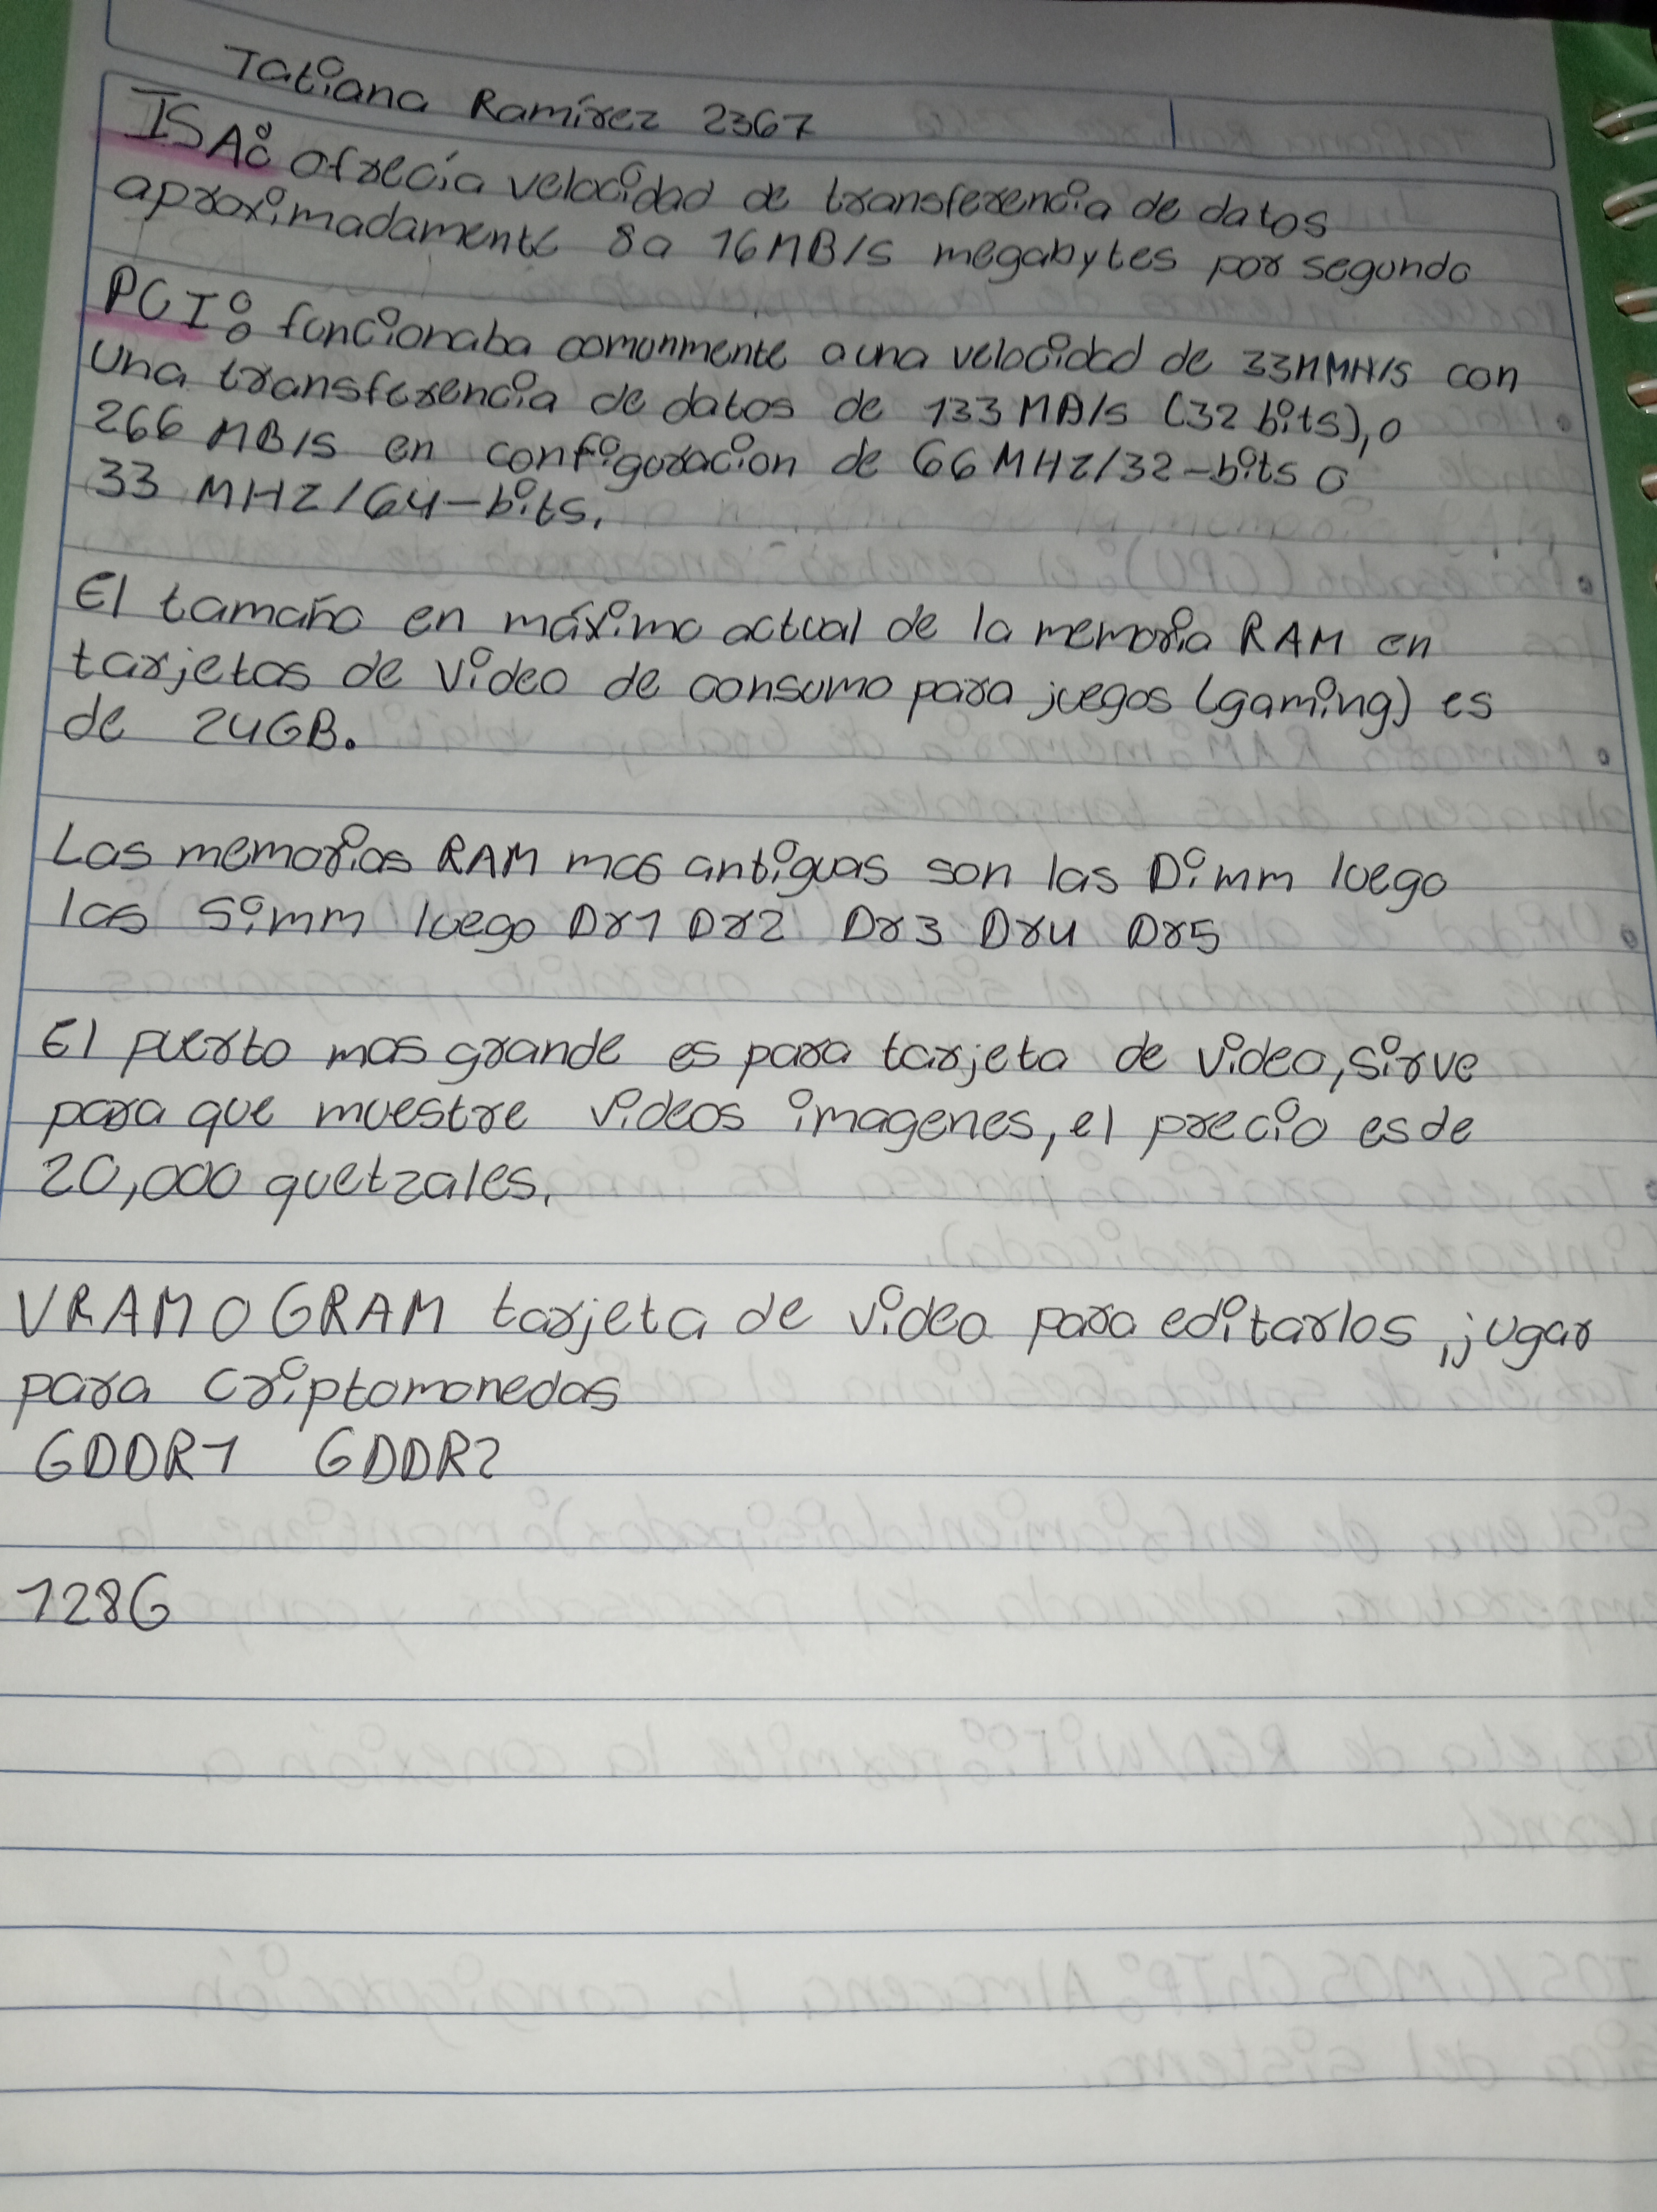 Tatiana Ramírez 2367
ISA: ofrecía velocidad de transferencia de datos
aproximadamente 8a 16MB/s megabytes por segundo
PCI: funcionaba comunmente a una velocidad de 33MMH/s con
Una transferencia de datos de 133 MB/s (32 bits), o
266 MB/s en configuracion de 66 MHZ/32-bits o
33 MHZ/64-bits.
El tamaño en máximo actual de la memoria RAM en
tarjetas de video de consumo para juegos (gaming) es
de 24GB.
Las memorias RAM mas antiguas son las Dimm luego
las Simm luego Dr1 Dr2 Dr3 Dr4 Dr5
El puerto mas grande es para tarjeta de video, sirve
para que muestre videos imagenes, el precio es de
20,000 quetzales.
VRAM O GRAM tarjeta de video para editarlos, jugar
para criptomonedas
GDDR1 GDDR2
128G